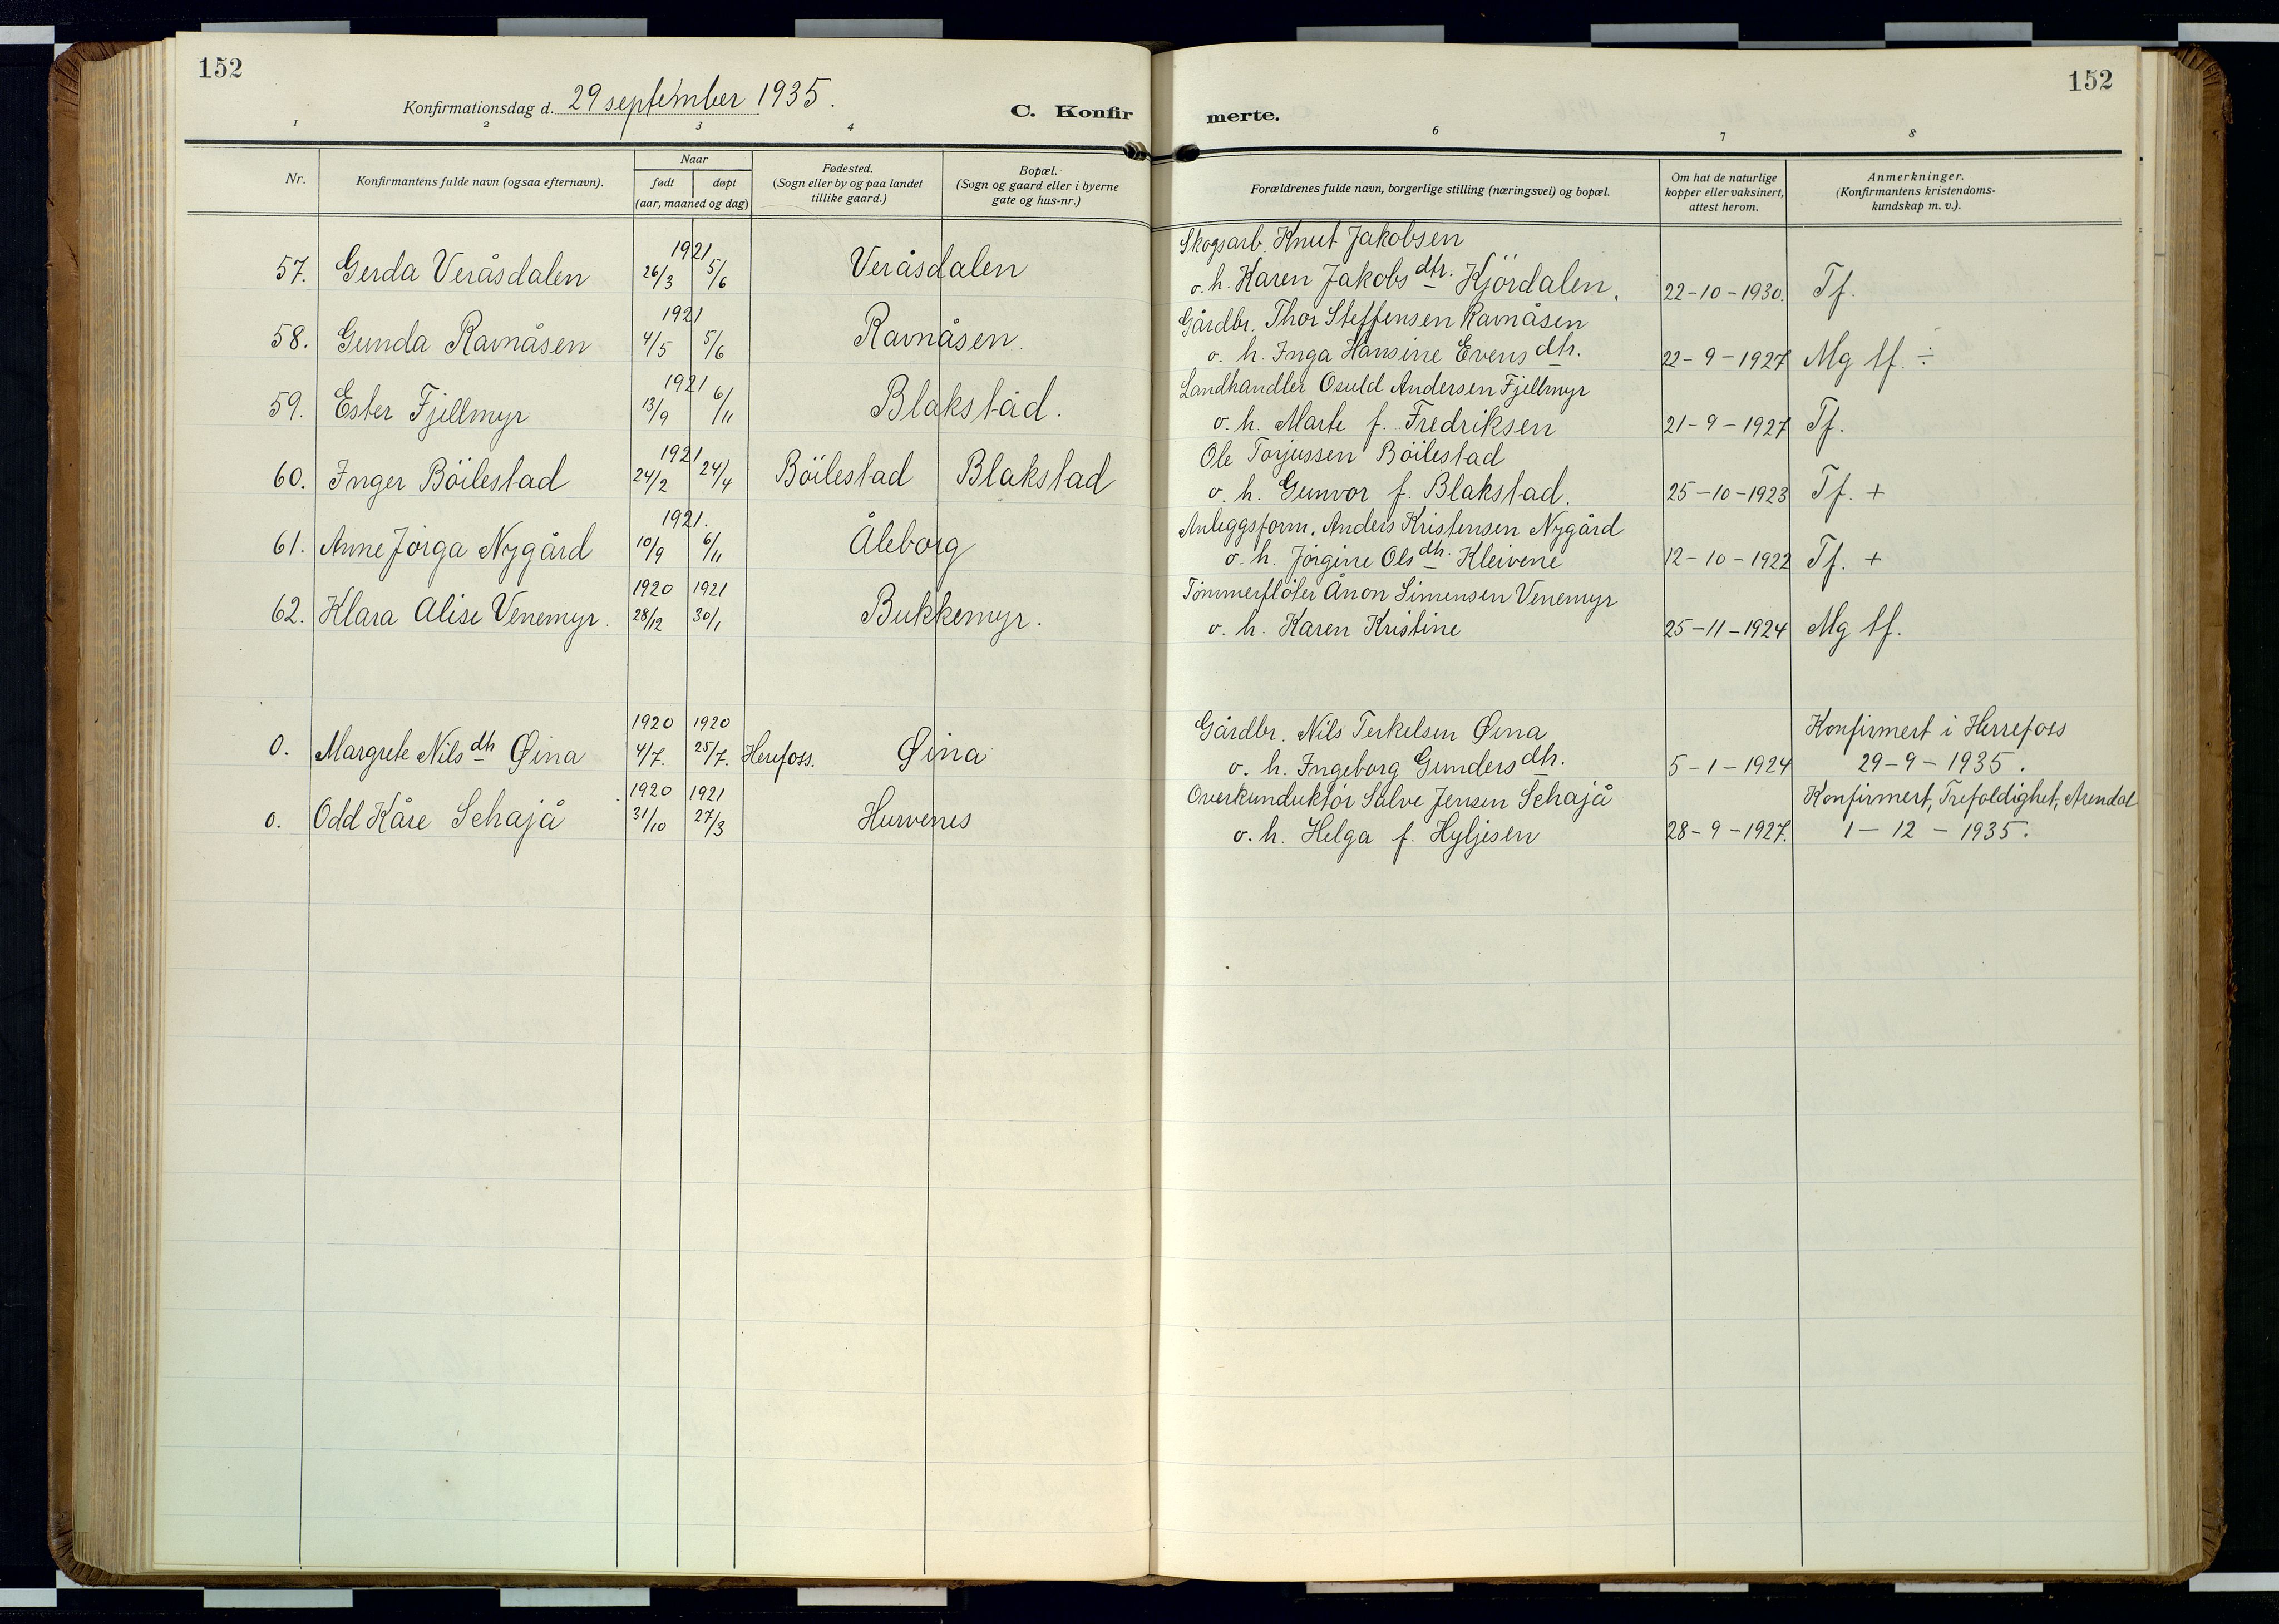 152
152
Konfirmationsdag d. 29 september 1935.
C. Konfir merte.
1 2 3 4 6 7 8
Nr. Konfirmantens fulde navn (ogsaa efternavn). Naar født døpt (aar, maaned og dag) Fødested. (Sogn eller by og paa landet tillike gaard.) Bopæl. (Sogn og gaard eller i byerne gate og hus-nr.) Forældrenes fulde navn, borgerlige stilling (næringsvei) og bopæl. Om hat de naturlige kopper eller vaksinert, attest herom. Anmerkninger. (Konfirmantens kristendoms-kundskap m. v.).
1921 Skogsarb. Knut Jakobsen
57. Gerda Veråsdalen 26/3 5/6 Veråsdalen o. h. Karen Jakobsdtr. Kjördalen. 22-10-1930. Tf.
1921 Gårdbr. Thor Steffensen Ravnåsen
58. Gunda Ravnåsen 4/5 5/6 Ravnåsen. o. h. Inga Hansine Evensdtr. 22-9-1927 Mg tf. ÷
1921 Landhandler Osuld Andersen Fjellmyr
59. Ester Fjellmyr 13/9 6/11 Blakstad. o. h. Marte f. Fredriksen 21-9-1927 Tf.
1921 Ole Torjussen Böilestad
60. Inger Böilestad 24/2 24/4 Böilestad Blakstad o. h. Gunvor f. Blakstad. 25-10-1923 Tf. +
1921. Anleggsform. Anders Kristensen Nygård
61. Anne Jörga Nygård 10/9 6/11 Åleborg o. h. Jörgine Olsdtr. Kleivene 12-10-1922 Tf. +
1920 1921 Tömmerflöter Ånon Simensen Venemyr
62. Klara Alise Venemyr. 28/12 30/1 Bukkemyr. o. h. Karen Kristine 25-11-1924 Mg tf.
1920 1920 Gårdbr. Nils Terkelsen Øina Konfirmert i Herrefoss
0. Margrete Nilsdtr Øina 4/7. 25/7. Herefoss. Øina o. h. Ingeborg Gundersdtr. 5-1-1924 29-9-1935.
1920 1921 Overkunduktör Salve Jensen Schajå Konfirmert, Trefoldighet, Arendal
0. Odd Kåre Schajå 31/10 27/3 Hurvenes o. h. Helga f. Hyljesen 28-9-1927. 1-12-1935.